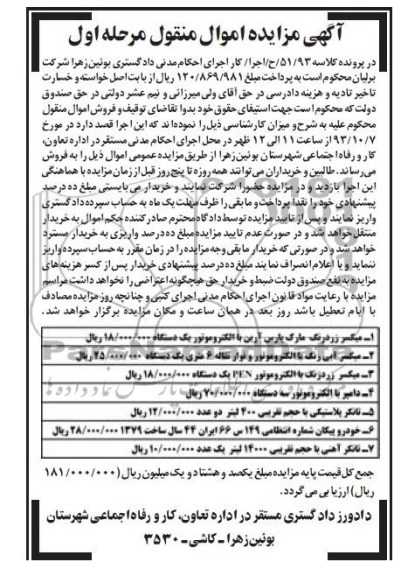 آگهی مزایده اموال منقول مرحله اول
در پرونده کلاسه ۵۱/۹۳/ح/اجرا/ کار اجرای احکام مدنی دادگستری بوئین زهرا شرکت
برلیان محکوم است به پرداخت مبلغ ۱۲۰/۸۶۹/۹۸۱ ریال از بابت اصل خواسته و خسارت
تاخیر تادیه و هزینه دادرسی در حق آقای ولی میرزائی و نیم عشر دولتی در حق صندوق
دولت که محکوم است جهت استیفای حقوق خود بدوا تقاضای توقیف و فروش اموال منقول
محکوم علیه به شرح و میزان کارشناسی ذیل را نموده اند که این اجرا قصد دارد در مورخ
۹۳/۱۰/۷ از ساعت ۱۱ الی ۱۲ ظهر در محل اجرای احکام مدنی مستقر در اداره تعاون،
کار و رفاه اجتماعی شهرستان بوئین زهرا از طریق مزایده عمومی اموال ذیل را به فروش
می رساند. طالبین و خریداران می توانند همه روزه تا پنج روز قبل از زمان مزایده با هماهنگی
این اجرا بازدید و در مزایده حضورا شرکت نمایند و خریدار می بایستی مبلغ ده درصد
پیشنهادی خود را نقدا پرداخت و مابقی را ظرف مهلت یک ماه به حساب سپرده دادگستری
واریز نماید و پس از تایید مزایده توسط دادگاه محترم صادر کننده حکم اموال به خریدار
منتقل خواهد شد و در صورت عدم تایید مزایده مبلغ ده درصد واریزی به خریدار مسترد
خواهد شد و در صورتی که خریدار مابقی وجه مزایده را در زمان مقرر به حساب سپرده واریز
ننماید و یا اعلام انصراف نمایند مبلغ ده درصد پیشنهادی خریدار پس از کسر هزینه های
مزایده به نفع صندوق دولت ضبط و خریدار حق هیچگونه اعتراضی را نخواهد داشت مراسم
مزایده با رعایت مواد قانون اجرای احکام مدنی اجرای کتبی و چنانچه روز مزایده مصادف
با ایام تعطیل باشد روز بعد در همان ساعت و مکان مزایده برگزار خواهد شد.
۱ـ میکسر زردرنگ مارک پارس آرین با الکتروموتور یک دستگاه ۱۸/۰۰۰/۰۰۰ ریال
۲ـ میکسر آبی رنگ با الکتروموتور و نوار نقاله ۶ متری یک دستگاه ۲۵/۰۰۰/۰۰۰ ریال
۳ـ میکسر زردرنگ با الکتروموتور PEN یک دستگاه ۱۸/۰۰۰/۰۰۰ ریال
۴ـ دامپر با الکتروموتور سه دستگاه ۷۰/۰۰۰/۰۰۰ ریال
۵ـ تانکر پلاستیکی با حجم تقریبی ۴۰۰ لیتر دو عدد ۱۲/۰۰۰/۰۰۰ ریال
۶ـ خودرو پیکان شماره انتظامی ۱۴۹ س ۶۶ ایران ۴۴ سال ساخت ۱۳۷۹ ۲۸/۰۰۰/۰۰۰ ریال
۷ـ تانکر آهنی با حجم تقریبی ۱۴۰۰۰ لیتر یک عدد ۱۰/۰۰۰/۰۰۰ ریال
جمع کل قیمت پایه مزایده مبلغ یکصد و هشتاد و یک میلیون ریال (۱۸۱/۰۰۰/۰۰۰
ریال) ارزیابی می گردد.
دادورز دادگستری مستقر در اداره تعاون، کار و رفاه اجتماعی شهرستان
بوئین زهرا ـ کاشی ـ ۳۵۳۰